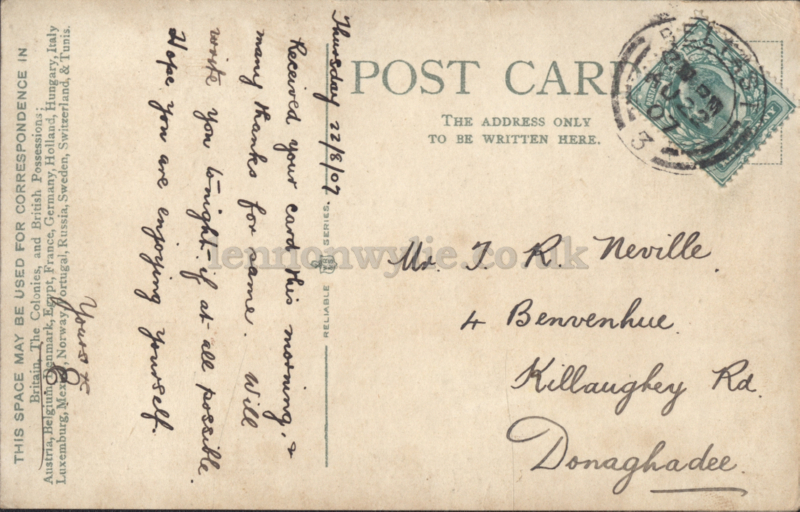 THIS SPACE MAY BE USED FOR CORRESPONDENCE IN
Britain, The Colonies, and British Possessions;
Austria, Belgium, Denmark, Egypt, France, Germany, Holland, Hungary, Italy
Luxemburg, Mexico, Norway, Portugal, Russia, Sweden, Switzerland, & Tunis.
Thursday 22/8/07
Received your card this morning, &
many thanks for same. Will
write you tonight if at all possible.
Hope you are enjoying yourself.
Yours
RELIABLE SERIES.
POST CARD
THE ADDRESS ONLY
TO BE WRITTEN HERE.
BELFAST
PM
AU 22
07
3
Mr. T. R. Neville.
4 Benvenhue.
Killaughey Rd.
Donaghadee.
lennonwylie.co.uk